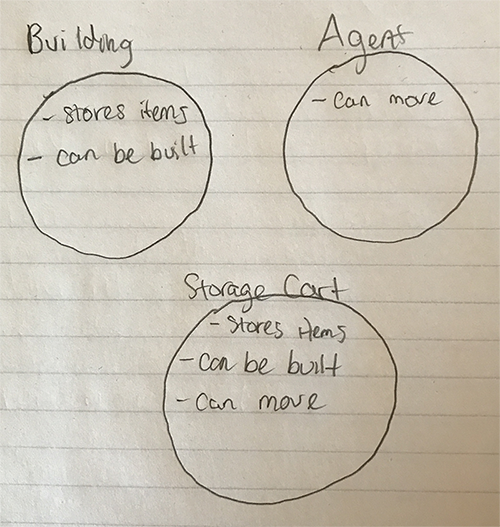 Building
- stores items
- can be built
Agent
- can move
Storage Cart
- stores items
- can be built
- can move